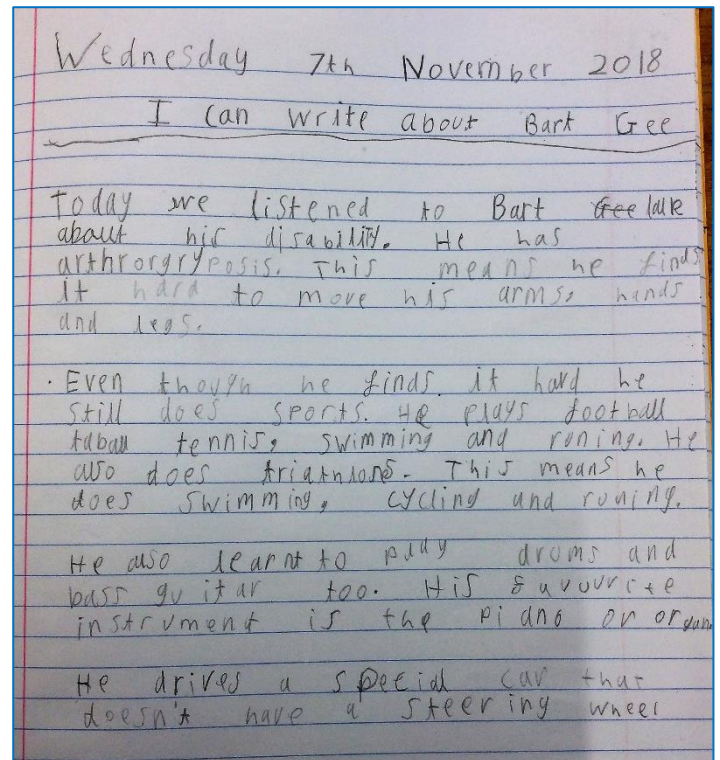 Wednesday 7th November 2018
I can write about Bart Gee
Today we listened to Bart Gee talk
about his disability. He has
arthrorgryposis. This means he finds
it hard to move his arms, hands
and legs.
. Even though he finds. it hard he
still does sports. He plays football
taball tennis, swimming and runing. He
also does triathlons. This means he
does swimming, cycling and runing.
He also learnt to play drums and
bass guitar too. His favourite
instrument is the piano or organ.
He drives a special car that
doesn't have a steering wheel